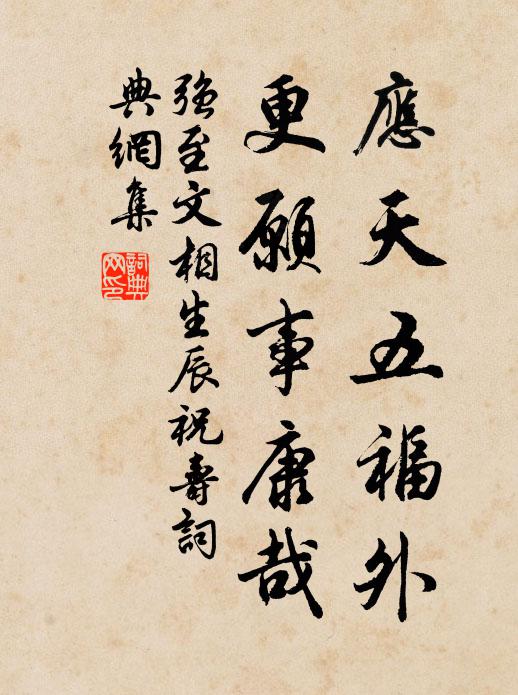 應天五福外
更願事康哉
強至文相生辰祝壽詞
典網集
詞典網印